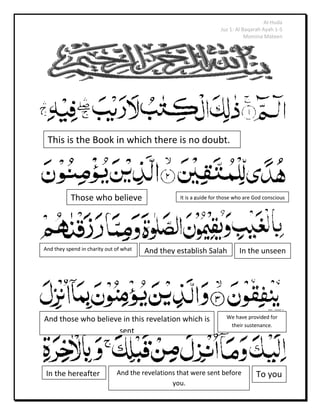 Al-Huda
Juz 1- Al Baqarah Ayah 1-5
Momina Mateen
بِسْمِ اللهِ الرَّحْمٰنِ الرَّحِيْمِ
الٓمّٓ ۚ﴿١﴾ ذٰلِكَ الْكِتٰبُ لَا رَيْبَ ۛۖ فِيْهِ ۛۚ
This is the Book in which there is no doubt.
هُدًى لِّلْمُتَّقِيْنَ ۙ﴿٢﴾ الَّذِيْنَ يُؤْمِنُوْنَ
Those who believe It is a guide for those who are God conscious
بِالْغَيْبِ وَيُقِيْمُوْنَ الصَّلٰوةَ وَمِمَّا رَزَقْنٰهُمْ
And they spend in charity out of what And they establish Salah In the unseen
يُنْفِقُوْنَ ۙ﴿٣﴾ وَالَّذِيْنَ يُؤْمِنُوْنَ بِمَآ اُنْزِلَ
And those who believe in this revelation which is sent We have provided for their sustenance.
اِلَيْكَ وَمَآ اُنْزِلَ مِنْ قَبْلِكَ ۚ وَبِالْاٰخِرَةِ
In the hereafter And the revelations that were sent before you. To you